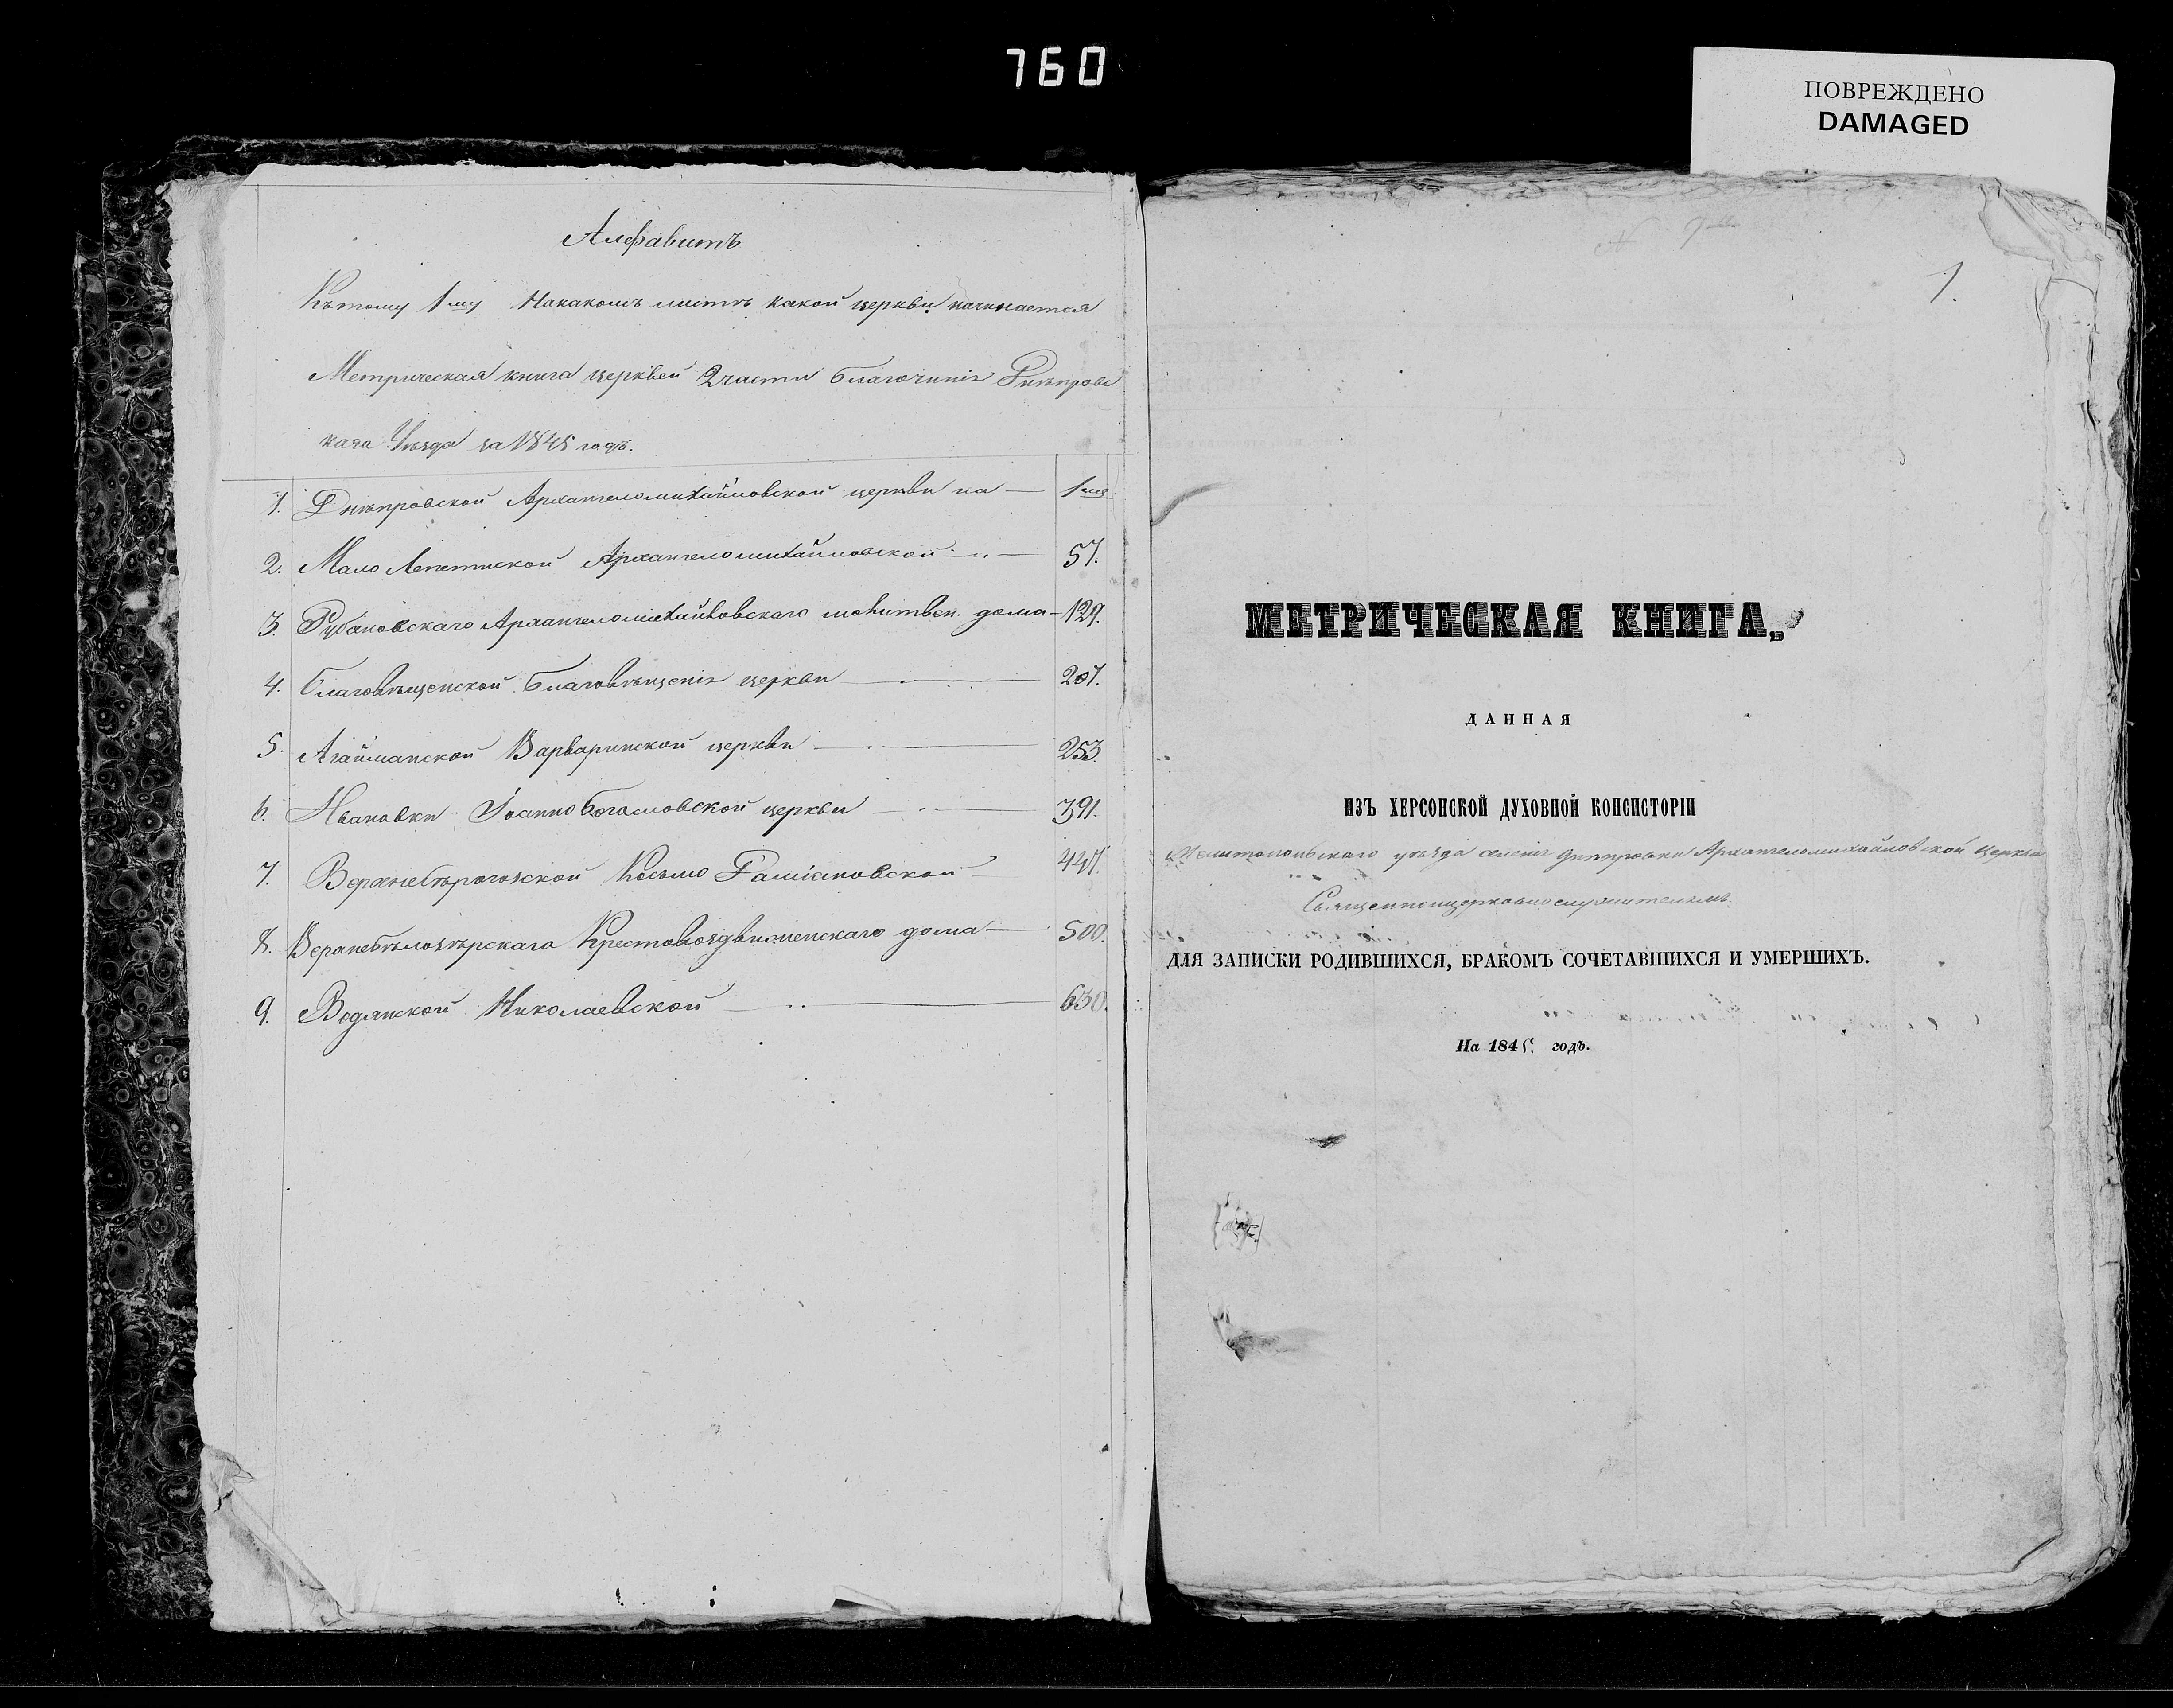 760
ПОВРЕЖДЕНО
DAMAGED
Алфавитъ
Къ тому 1му На какомъ листѣ какой церкви начинается
Метрическая книга церквей 2 части благочинія Днѣпровс
каго Уѣзда за 1845 годъ.
1. Днѣпровской Архангеломихайловской церкви на — 1мъ
2. Мало Лепетиской Архангеломихайловской — 57.
3. Рубановскаго Архангеломихайловскаго молитвен. дома — 129.
4. Благовѣщенской Благовѣщенія церкви — 207.
5. Агайманской Варваринской церкви — 253.
6. Ивановки Іоанно Богословской церкви — 391.
7. Верхнебѣрогозской Космо Даміановской — 447.
8. Верхнебѣлозѣрскаго Крестовоздвиженскаго дома — 500.
9. Водянской Николаевской — 630.
1.
МЕТРИЧЕСКАЯ КНИГА,
ДАННАЯ
ИЗЪ ХЕРСОНСКОЙ ДУХОВНОЙ КОНСИСТОРІИ
Мелитопольскаго уѣзда селенія Днѣпровки Архангеломихайловской Церкви
Священноцерковнослужителямъ
ДЛЯ ЗАПИСКИ РОДИВШИХСЯ, БРАКОМЪ СОЧЕТАВШИХСЯ И УМЕРШИХЪ.
На 1845. годъ.